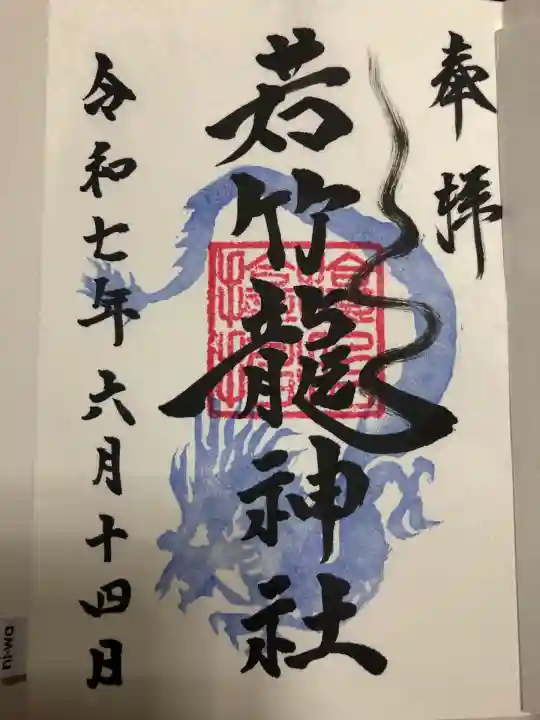 奉拝
若竹龍神社
令和七年六月十四日
ni-wa